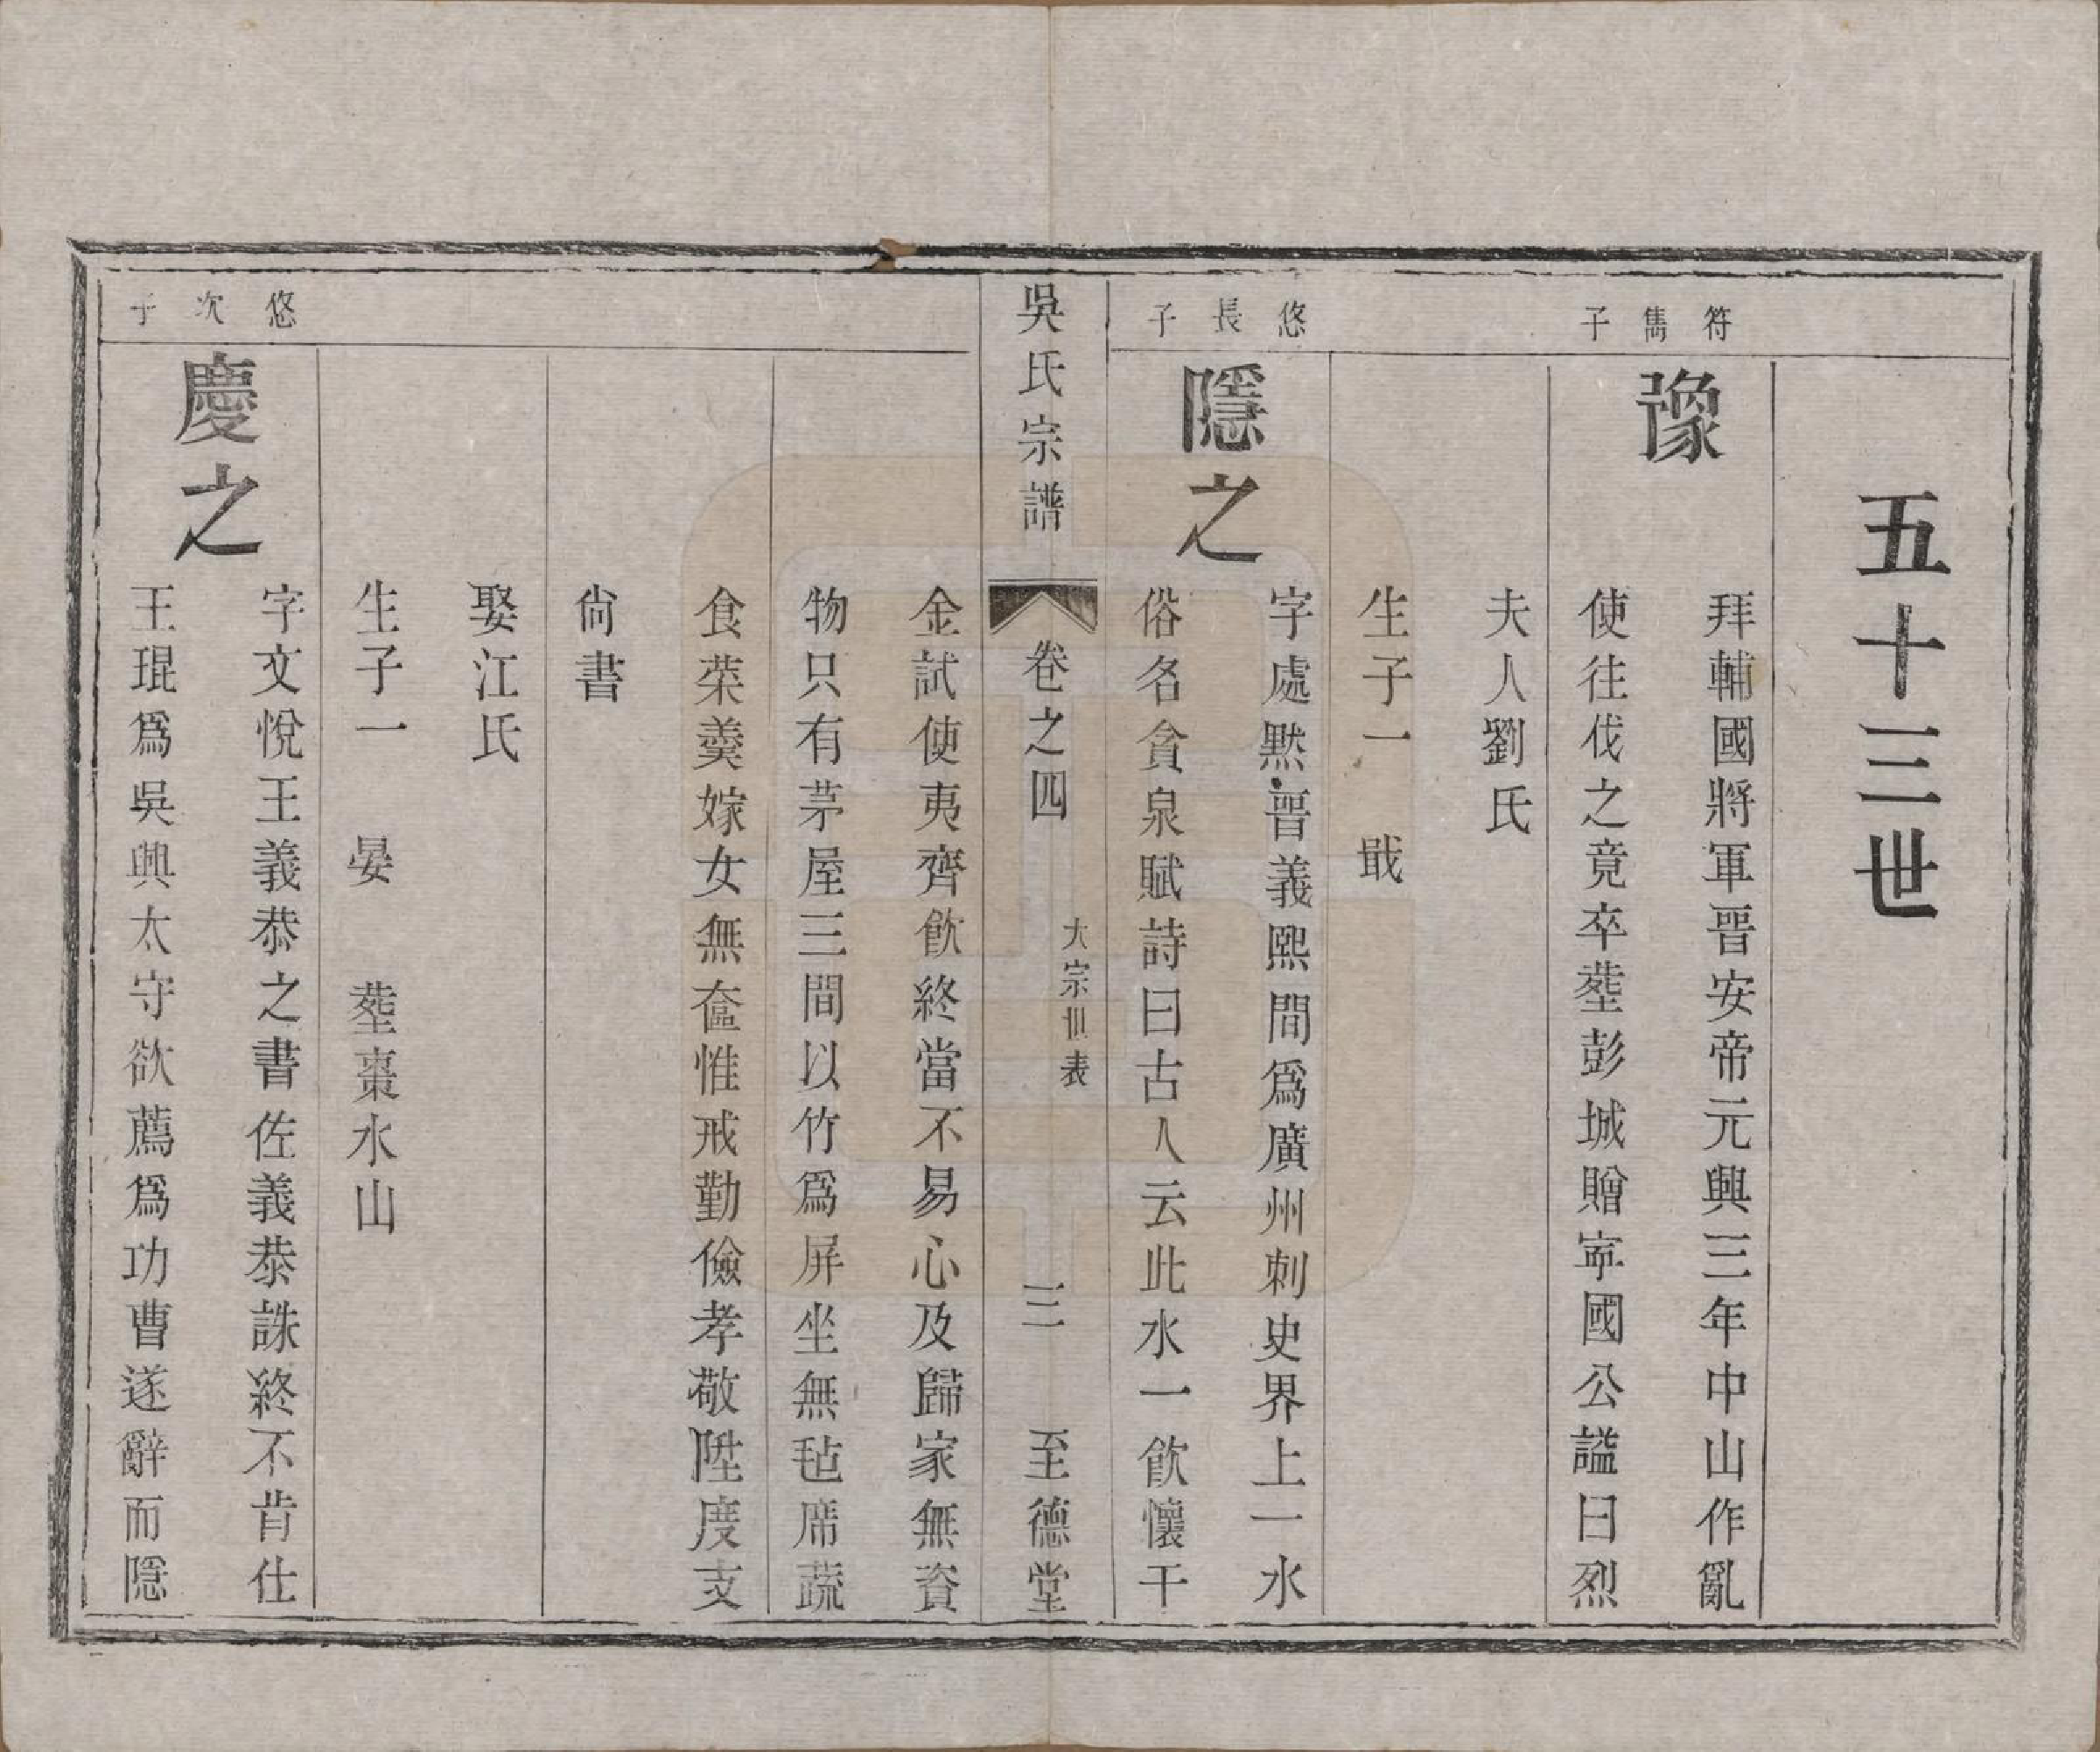 五十三世
符雋子
豫
拜輔國將軍晉安帝元興三年中山作亂
使往伐之竟卒塟彭城贈寜國公謚曰烈
夫人劉氏
生子一　戢
悠長子
隱之
字處黙晉義熙間爲廣州刺史界上一水
俗名貪泉賦詩曰古人云此水一飮懷千
吳氏宗譜　卷之四　大宗世表　三　至德堂
金試使夷齊飮終當不易心及歸家無資
物只有茅屋三間以竹爲屏坐無毡席蔬
食菜羹嫁女無奩惟戒勤儉孝敬陞度支
尙書
娶江氏
生子一　晏　塟棗水山
悠次子
慶之
字文悅王義恭之書佐義恭誅終不肯仕
王琨爲吳興太守欲薦爲功曹遂辭而隱